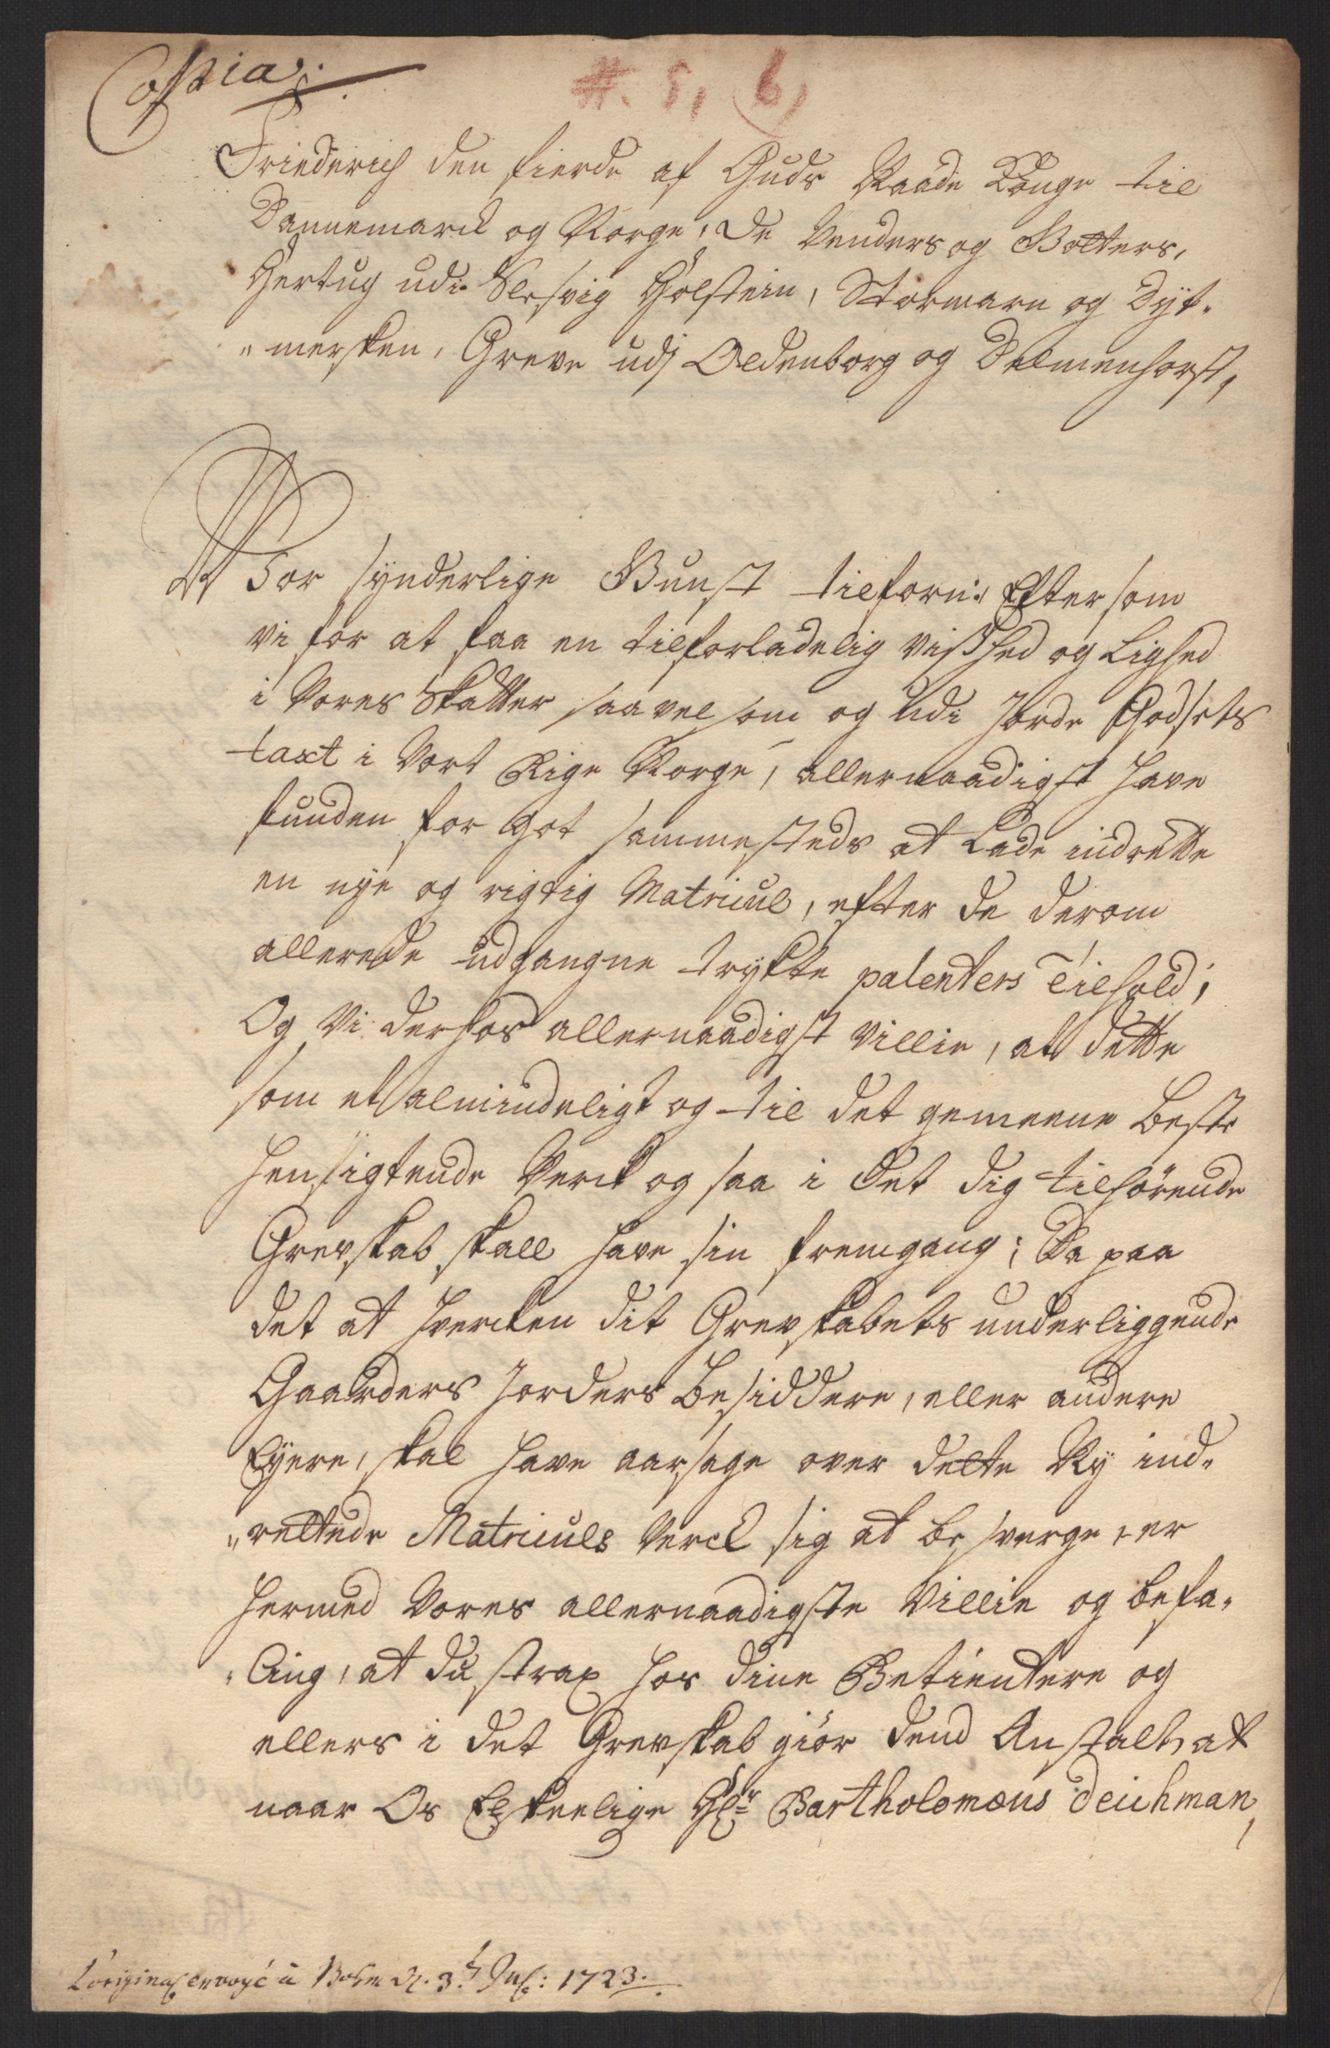 Copia.
#. 5, (6)
Friederich den fierde af Guds Naade Konge til
Dannemarck og Norge, de Venders og Gotters,
Hertug udi Slesvig Holstein, Stormarn og Dyt-
"mersken, Greve udj Oldenborg og Delmenhorst,
Vor synderlige Gunst tilforn: Eftersom
vi for at faa en tilforladelig vished og Lighed
i Vores Skatter saavelsom og udi Jorde Godsets
taxt i Vort Rige Norge, allernaadigst have
funden for got sammesteds at Lade indrette
en nye og rigtig Matricul, efter de derom
allerede udgangne trykte patenters Tilhold;
Og Vi derhos allernaadigst villie, at dette
som et almindeligt og til det gemeene beste
hensigtende Verck og saa i det dig tilhörende
Grevskab skall have sin fremgang; Da paa
det at hvercken dit Grevskabets underliggende
Gaarders Jorders besiddere, eller andere
Eyere, skal have aarsage over dette Ny ind-
"rettede Matriculs Verck sig at besverge, er
hermed Vores allernaadigste Villie og befa-
"ling, at du strax hos dine Betientere og
ellers i det Grevskab giör dend Anstalt, at
naar Os Elskelige Hr Bartholomæus Deichman,
L'original envoyé à Bohm d. 3. Jul: 1723.